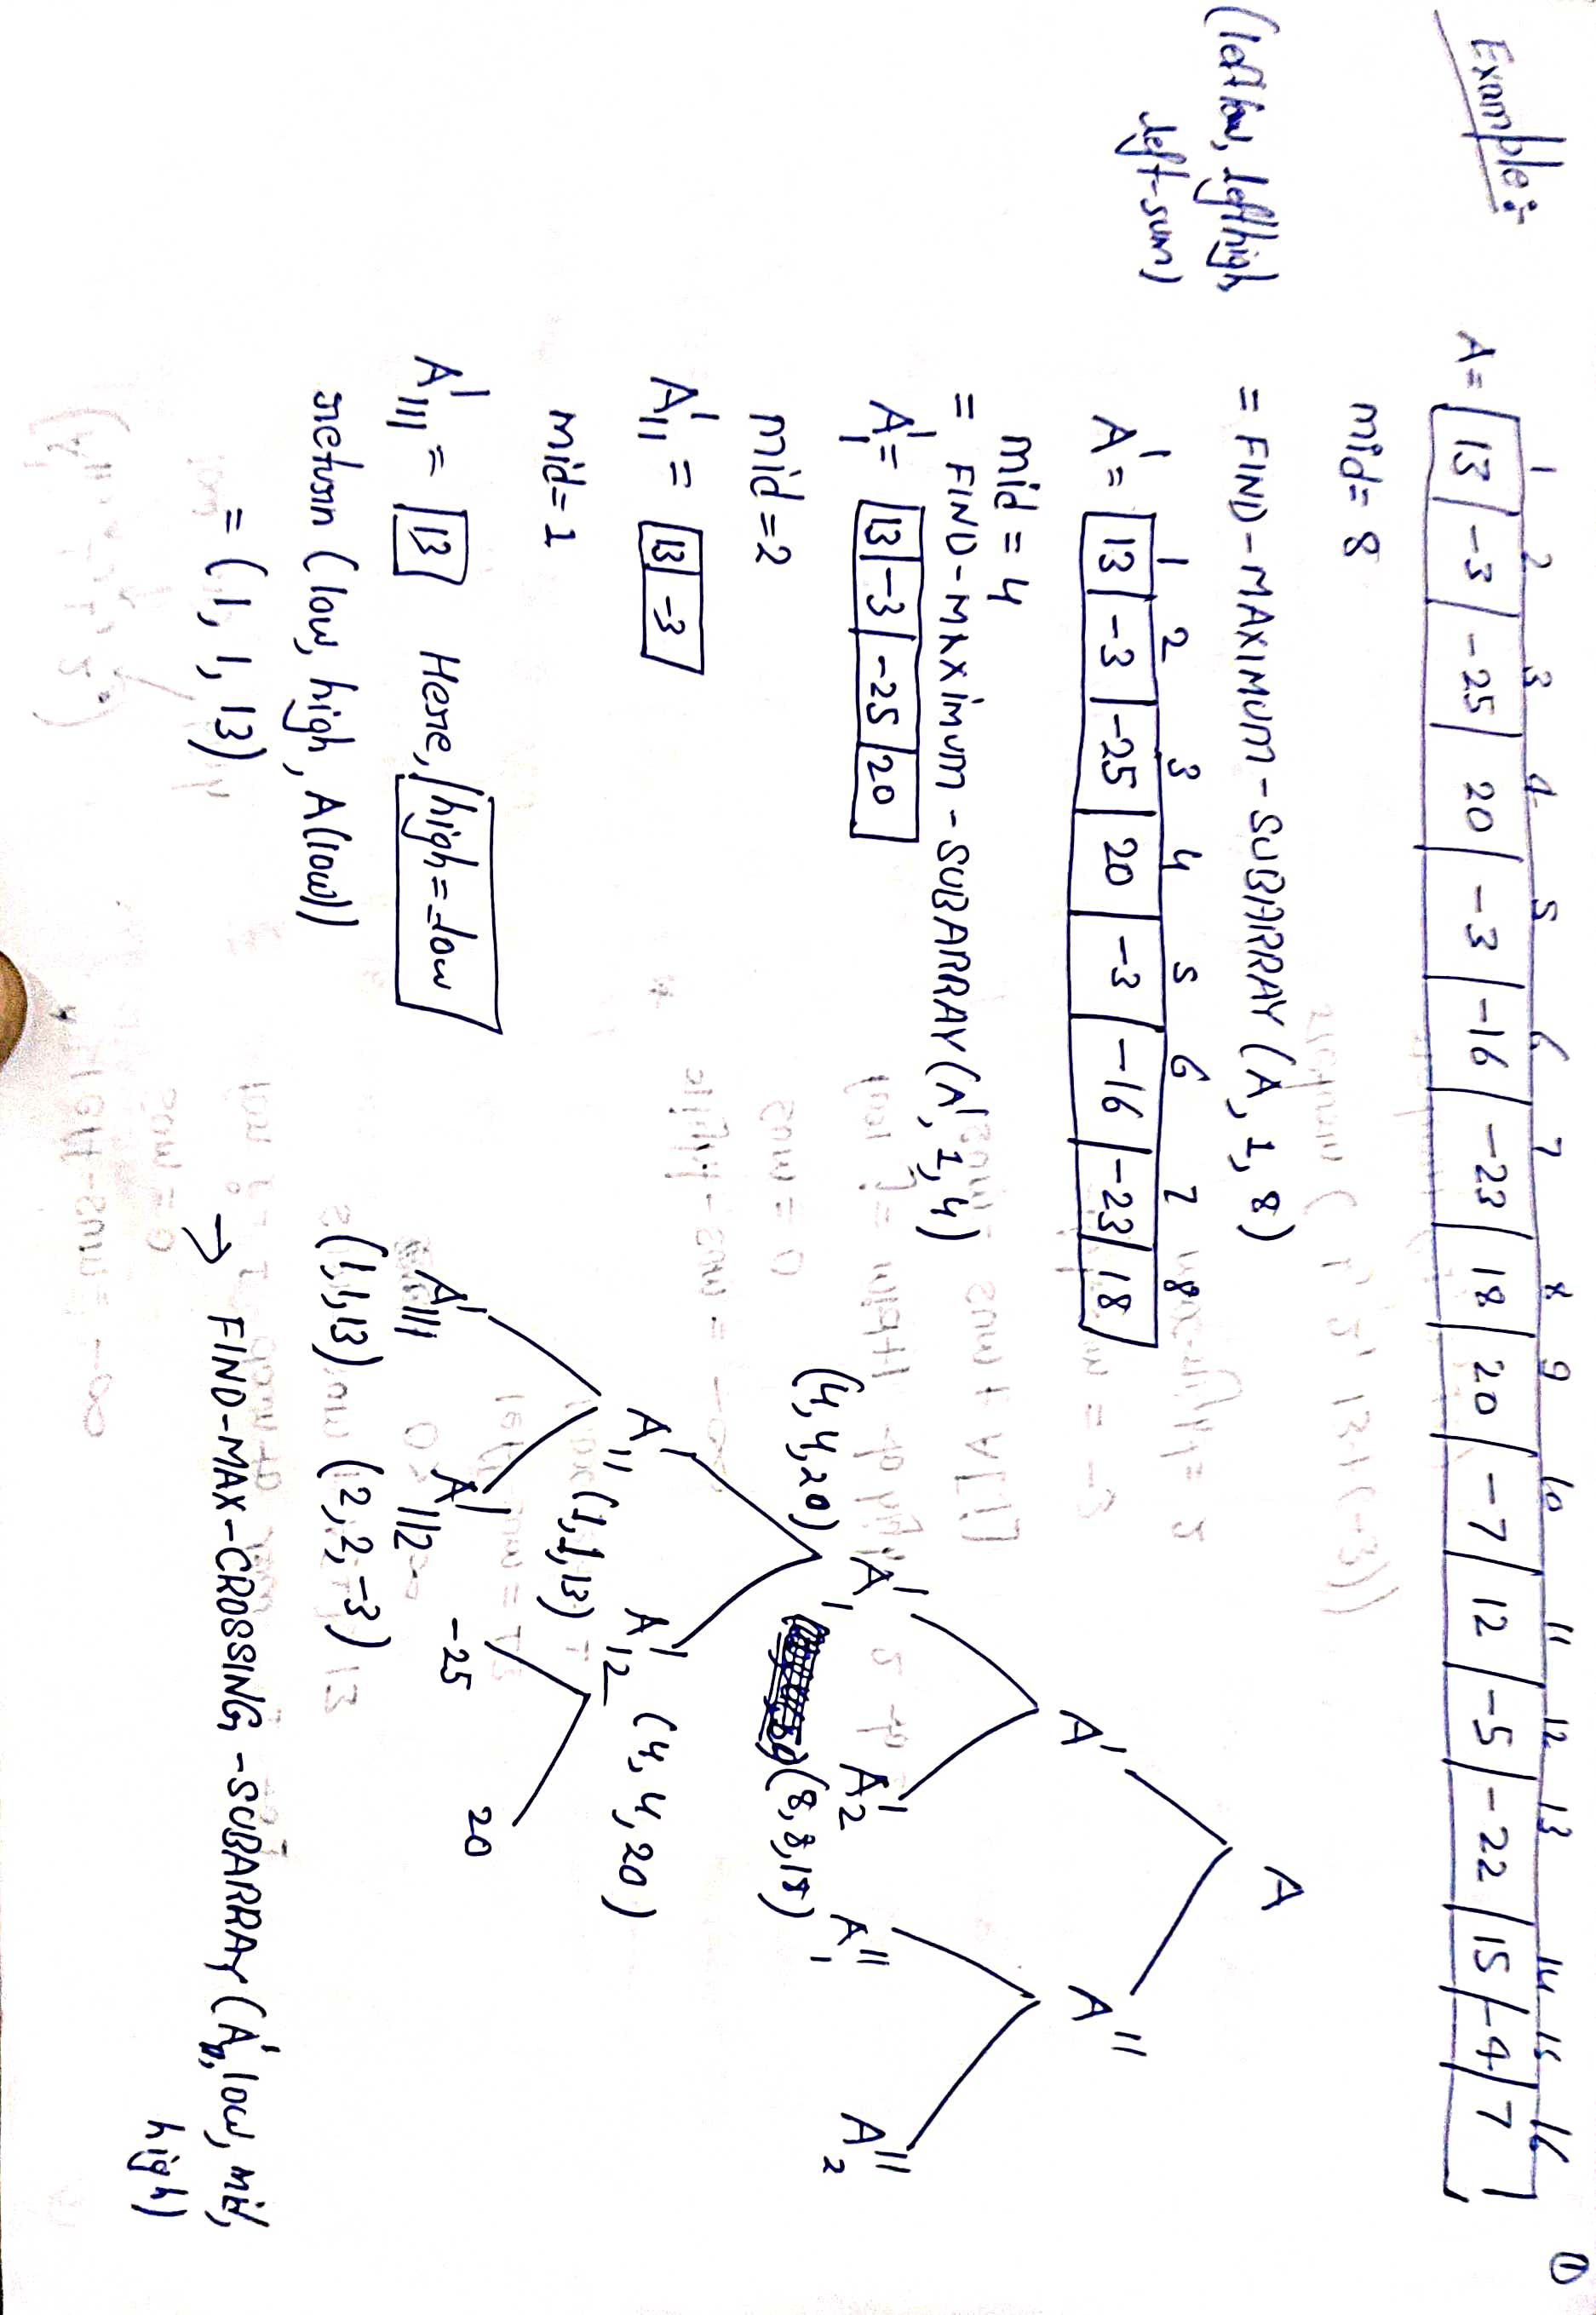 ①
Example:-
1 2 3 4 5 6 7 8 9 10 11 12 13 14 15 16
A = 13 | -3 | -25 | 20 | -3 | -16 | -23 | 18 | 20 | -7 | 12 | -5 | -22 | 15 | -4 | 7
mid = 8
(left low, left high, left-sum)
= FIND-MAXIMUM-SUBARRAY (A, 1, 8)
1 2 3 4 5 6 7 8
A' = 13 | -3 | -25 | 20 | -3 | -16 | -23 | 18
mid = 4
= FIND-MAXIMUM-SUBARRAY (A', 1, 4)
A'₁ = 13 | -3 | -25 | 20
mid = 2
A'₁₁ = 13 | -3
mid = 1
A'₁₁₁ = 13 Here, high = low
return (low, high, A(low))
= (1, 1, 13)
A
A' A''
A'₁ A'₂ A''₁ A''₂
(4,4,20) (8,8,18)
A'₁₁ (1,1,13) A'₁₂ (4,4,20)
A'₁₁₁ A'₁₁₂ -25 20
(1,1,13) (2,2,-3)
→ FIND-MAX-CROSSING-SUBARRAY (A', low, mid,
high)